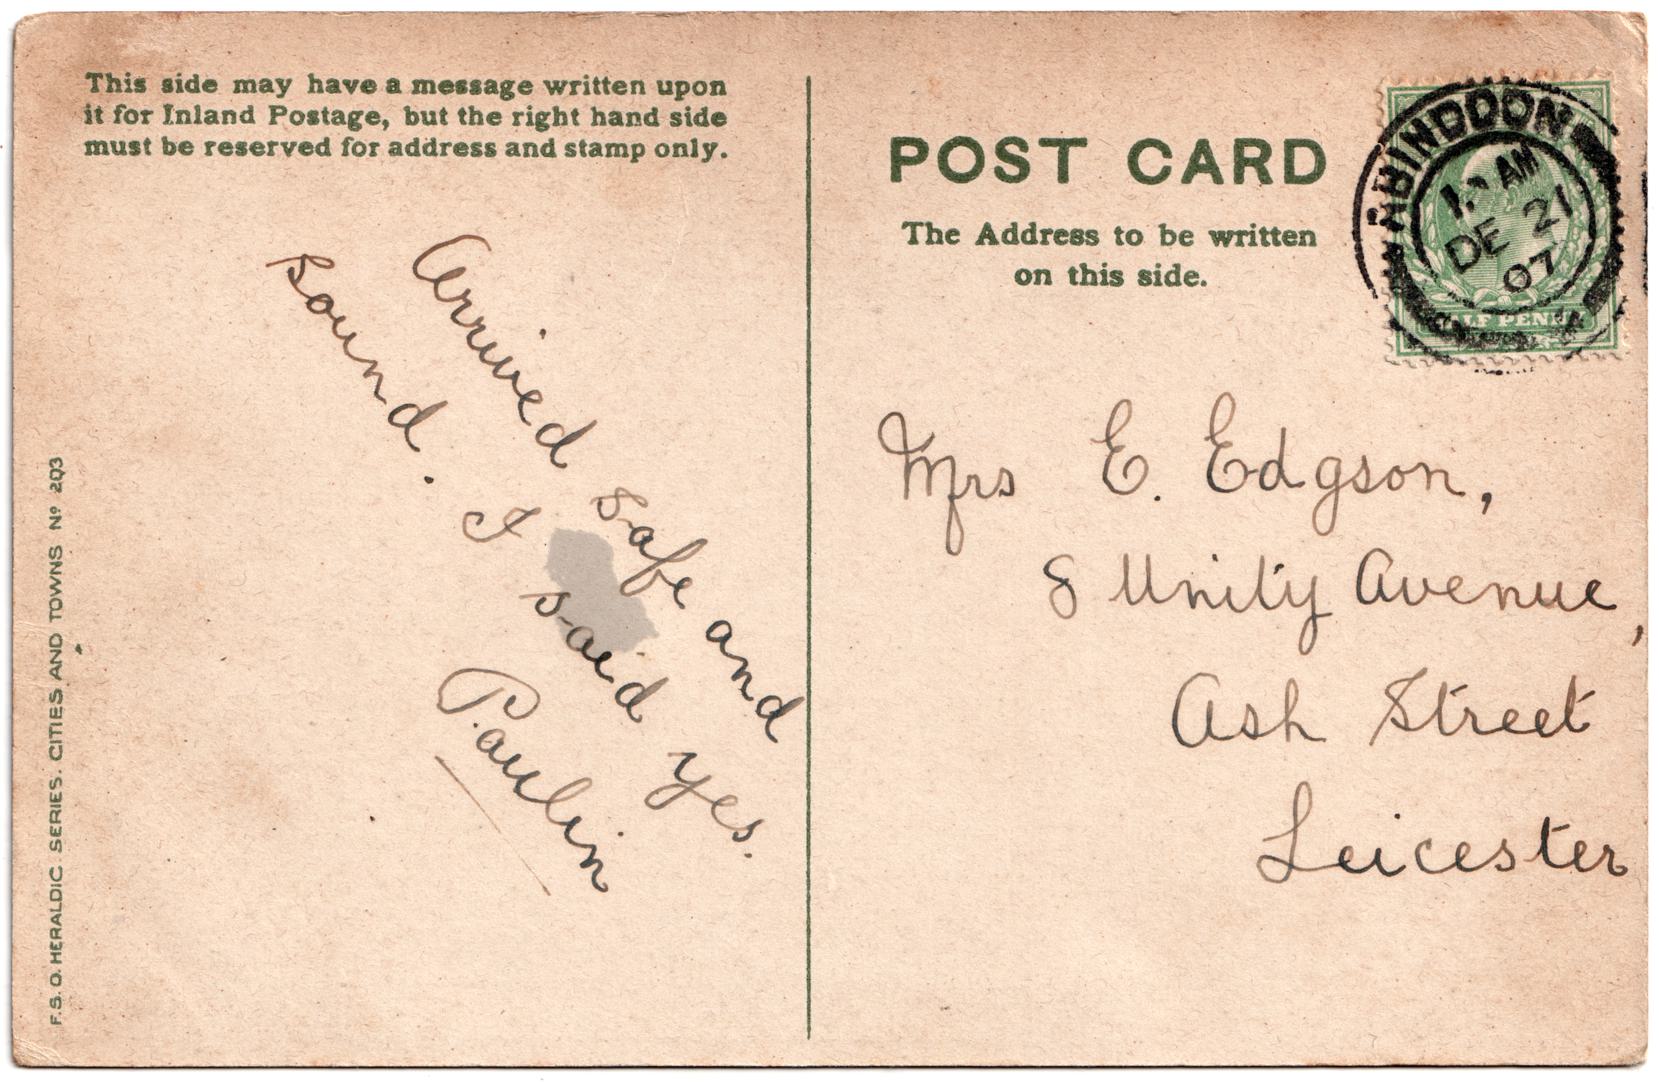 This side may have a message written upon
it for Inland Postage, but the right hand side
must be reserved for address and stamp only.
Arrived safe and
sound. I said yes.
Paulin
F.S.O. HERALDIC SERIES. CITIES AND TOWNS Nº 203
POST CARD
The Address to be written
on this side.
ABINGDON
AM
DE 21
07
HALF PENNY
Mrs E. Edgson,
8 Unity Avenue,
Ash Street
Leicester